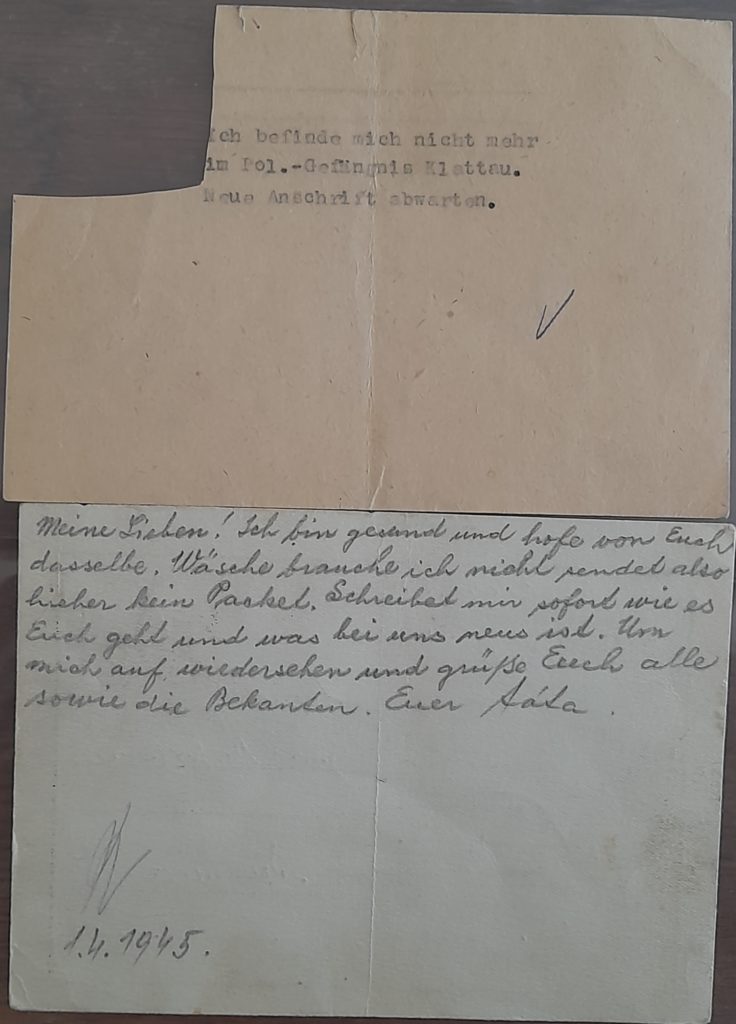 ich befinde mich nicht mehr
im Pol.-Gefängnis Klattau.
Neue Anschrift abwarten.
Meine Lieben! Ich bin gesund und hofe von Euch
dasselbe. Wäsche brauche ich nicht sendet also
hieher kein Packet. Schreibet mir sofort wie es
Euch geht und was bei uns neus ist. Um
mich auf wiedersehen und grüße Euch alle
sowie die Bekanten. Euer táta.
1.4.1945.